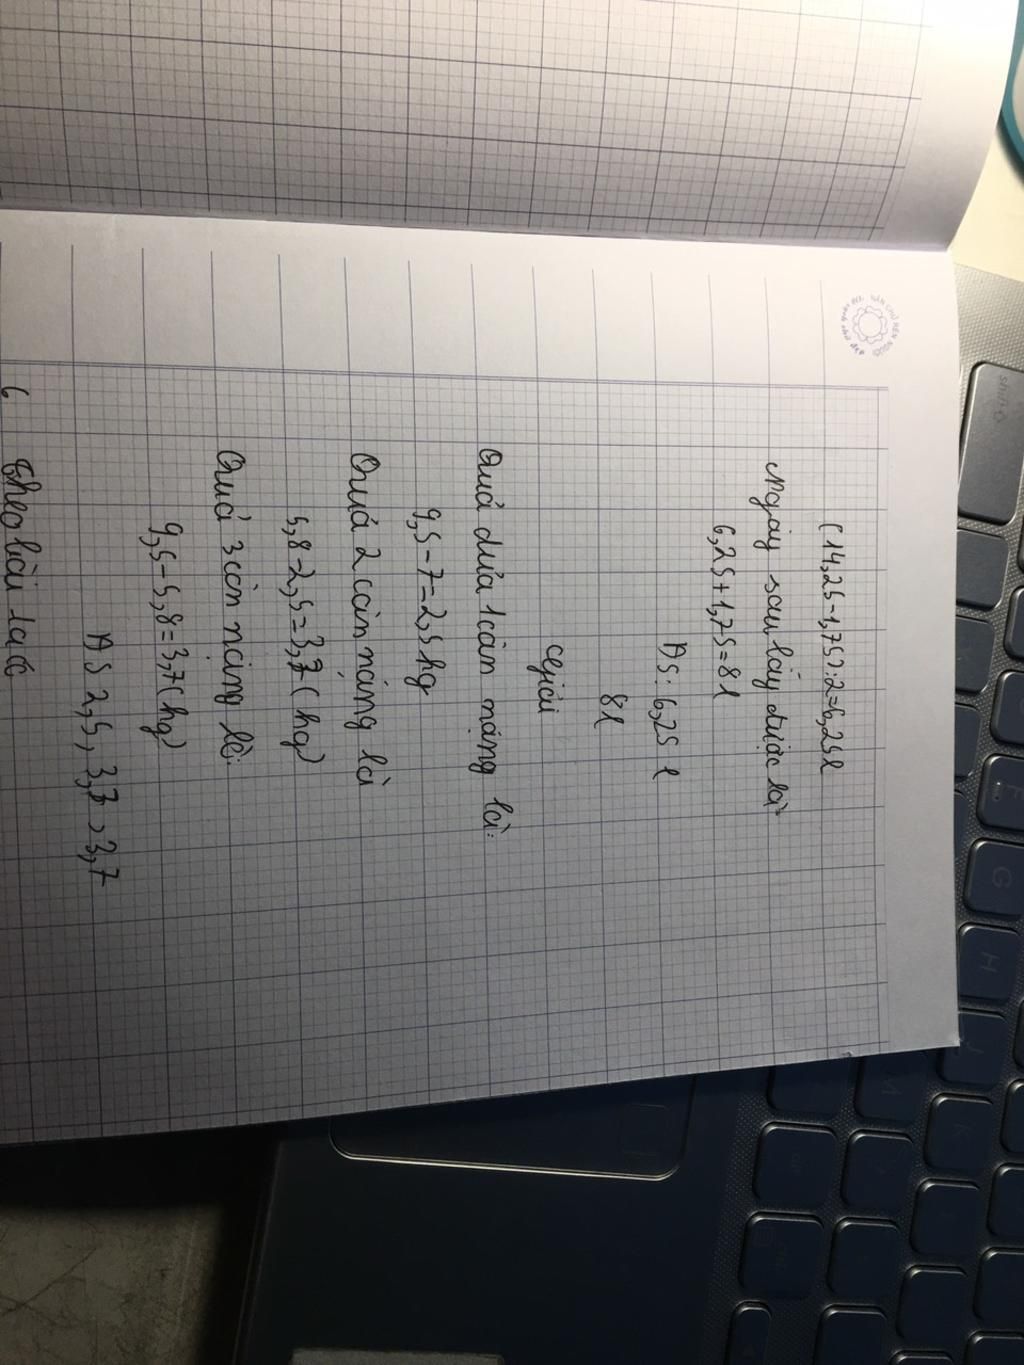 (14,25-1,75):2=6,25l
Ngày sau lấy được là
6,25+1,75=8l
ĐS: 6,25 l
8l
Giải
Quả dưa 1 cân nặng là:
9,5-7=2,5 kg
Quả 2 cân nặng là
5,8-2,5=3,7( kg)
Quả 3 cân nặng là:
9,5-5,8=3,7( kg)
ĐS 2,5, 3,7 >3,7
6 Theo bài ta có
shift